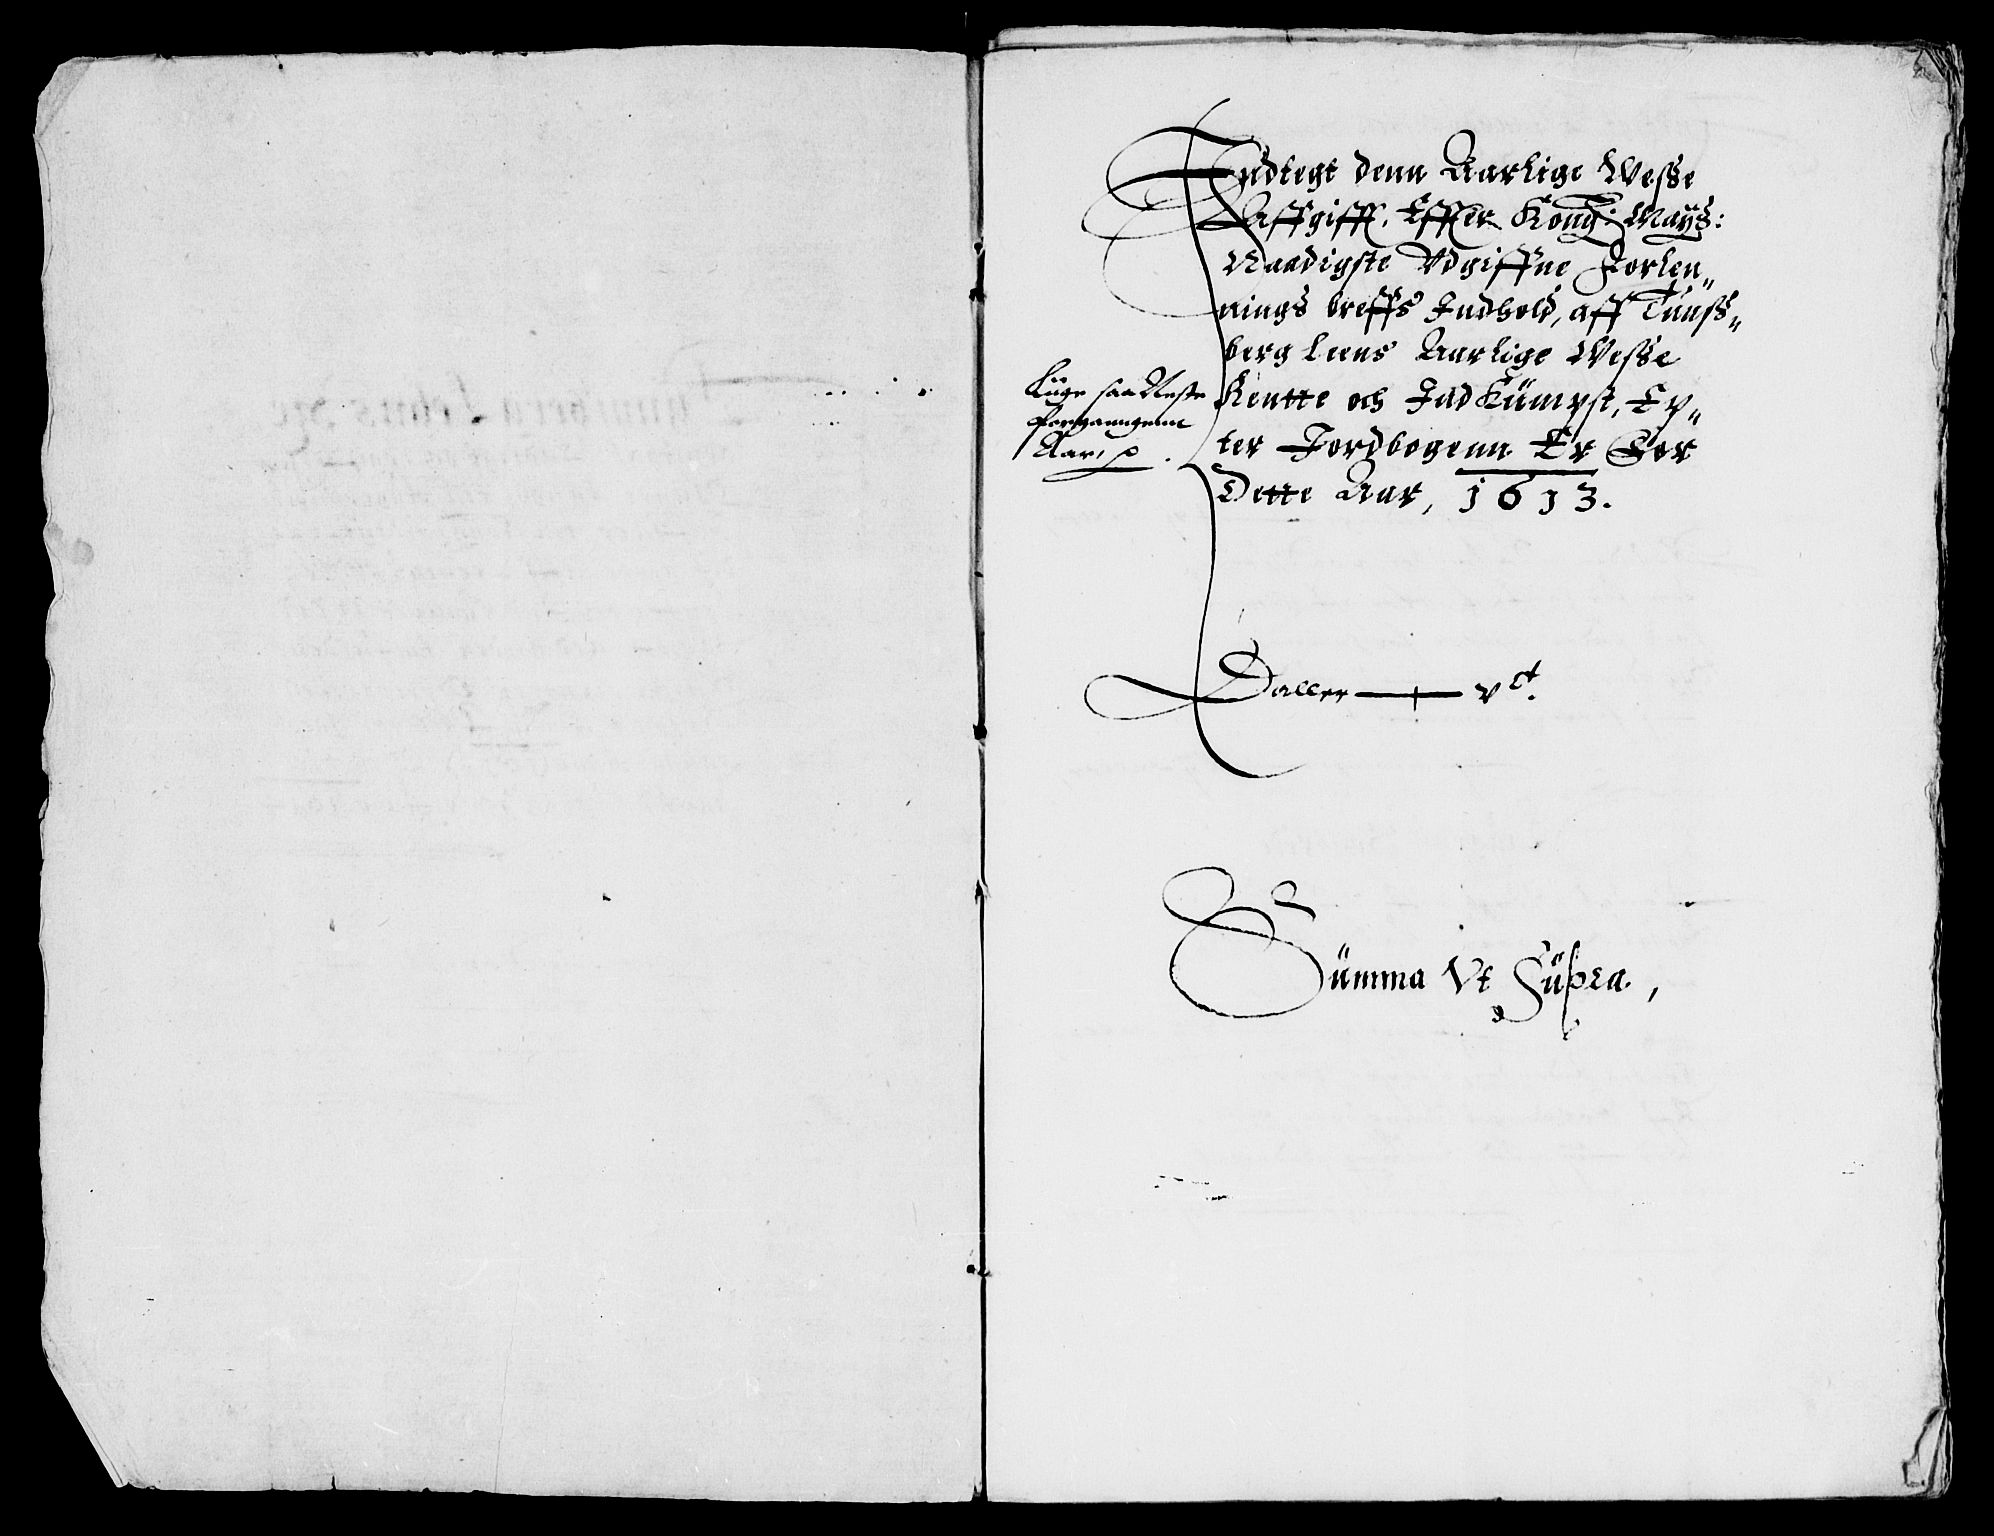 Indtegt denn Aarlige Wesse
Affgifft, Effter Kong: Mayts:
Naadigste Udgiffne Forlen„
nings breffs Indhold, aff Tunss„
berg leens Aarlige Wesse
Rentte och Indkumpst, Ep„
ter Jordbogenn Er For
Dette Aar, 1613.
Liige saa Neste
forganngenn
Aar,
Daller ——— vc.
Summa Vt Supra,